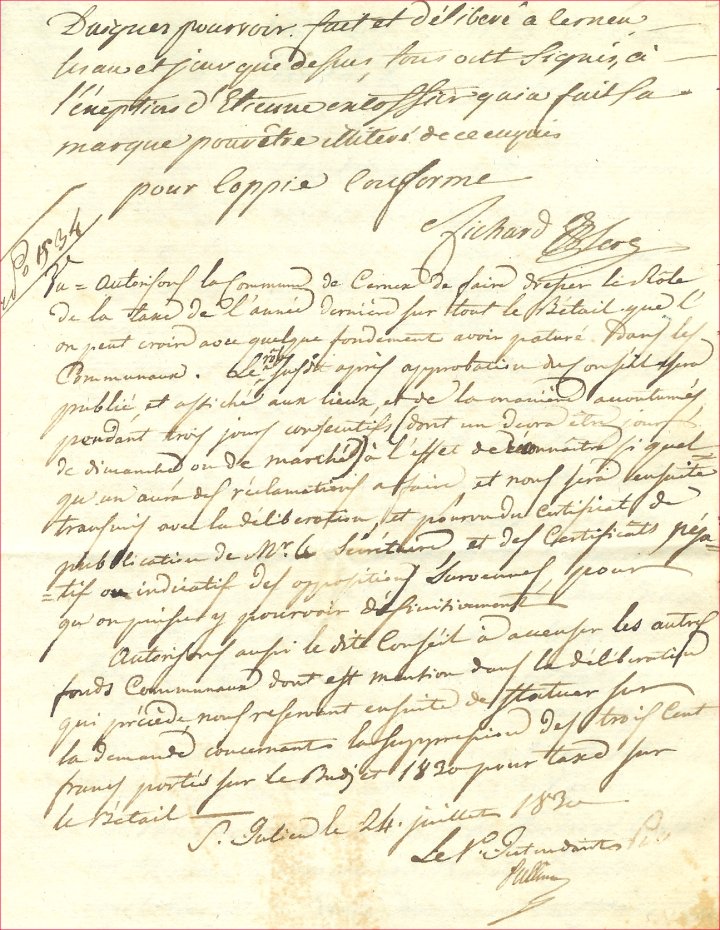 D'ay que pourvoir. fait et délibéré à Cernex
les an et jour que dessus, tous ont signés, à
l'éxeption d'Etienne qui a fait sa
marque pour être illiteré de ce enquis
pour Coppie Conforme
Richard
N° 1534
Vu = Autorisons la Commune de Cernex de faire dresser le Rôle
de la taxe de l'année dernière sur tout le Bétail que l'
on peut croire avec quelque fondement avoir paturé Dans les
Communaux. Le rôle susdit après approbation du Conseil sera
publié et affiché aux lieux et de la manière accoutumés
pendant trois jours consecutifs (dont un devra être jour
de dimanche ou de marché) à l'effet de connaître si quel=
qu'un aura des réclamations a faire, et nous sera ensuite
transmis avec la délibération, et pourvu du Certificat de
publication de Mr. le Secrétaire, et des Certificats néga=
=tif ou indicatif des oppositions Survenues, pour
qu'on puisse y pourvoir définitivement
Autorisons aussi le dit Conseil à accenser les autres
fonds Communaux dont est mention dans la délibération
qui précède, nous reservant ensuite de statuer sur
la demande concernant la suppression des trois Cent
francs portés sur le Budjet 1830 pour taxe sur
le Bétail
St. Julien le 24. juillet 1830
Le V. Intendant